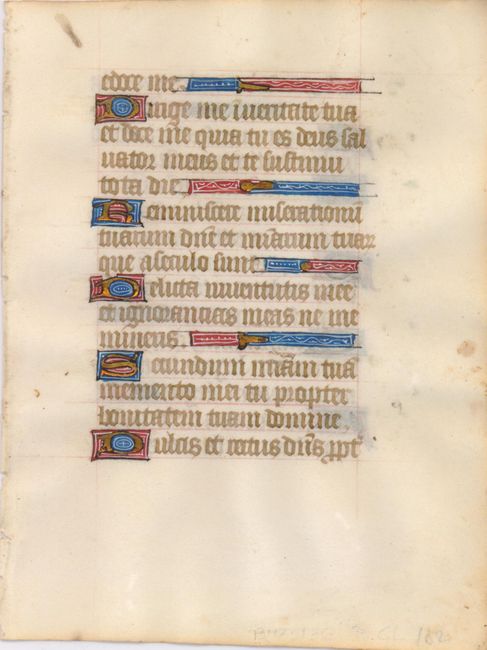 edoce me
Dirige me i veritate tua
et doce me quia tu es deus sal
uator meus et te sustinui
tota die
Reminiscere miserationũ
tuarum dñe et miãrum tuarꝝ
que a seculo sunt
Delicta iuuentutis mee
et ignorancias meas ne me
mineris
Secundum miãm tuã
memento mei tu propter
bonitatem tuam domine
Dulcis et rectus dñs ꝓpt̃